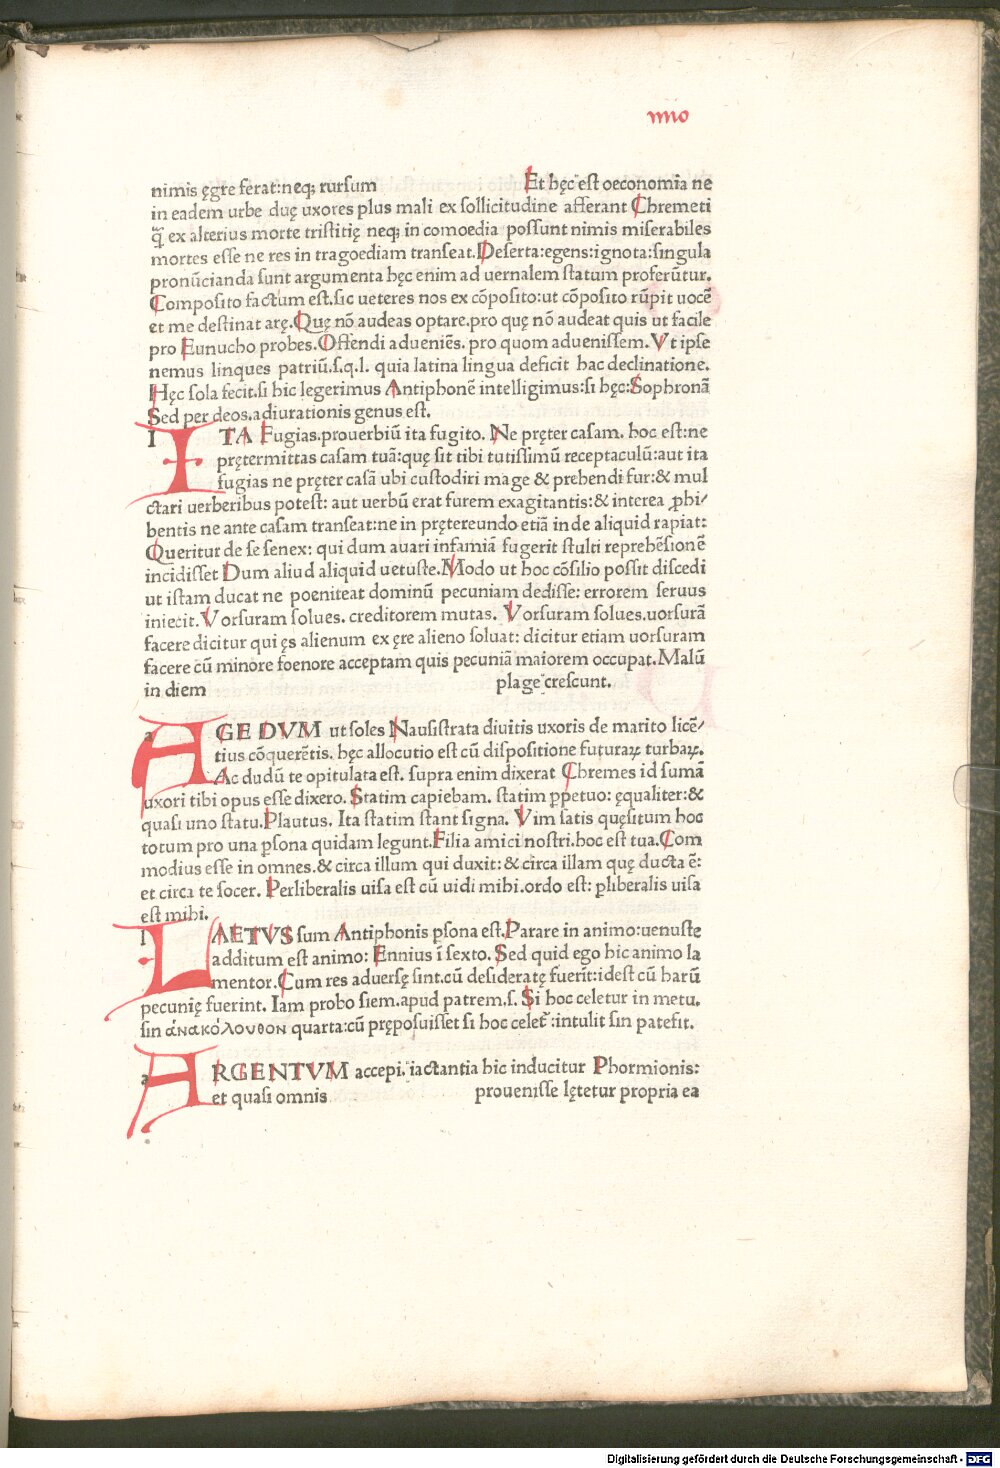 nimis ęgre ferat:neq; rursum Et hęc est oeconomia ne
in eadem urbe duę uxores plus mali ex sollicitudine afferant Chremeti
q̃ ex alterius morte tristitię neq; in comoedia possunt nimis miserabiles
mortes esse ne res in tragoediam transeat.Deserta:egens:ignota:singula
pronũcianda sunt argumenta hęc enim ad uernalem statum proferũtur.
Composito factum est.sic ueteres nos ex cõposito:ut cõposito rũpit uocẽ
et me destinat arę.Quę nõ audeas optare.pro quę nõ audeat quis ut facile
pro Eunucho probes.Offendi adueniẽs. pro quom aduenissem.Vt ipse
nemus linques patriũ.s.q.l. quia latina lingua deficit hac declinatione.
Hęc sola fecit.si hic legerimus Antiphonẽ intelligimus:si hęc:Sophronã
Sed per deos.adiurationis genus est.
I ITA Fugias.prouerbiũ ita fugito. Ne pręter casam. hoc est:ne
prętermittas casam tuã:quę sit tibi tutissimũ receptaculũ:aut ita
fugias ne pręter casã ubi custodiri mage & prehendi fur:& mul
ctari uerberibus potest: aut uerbũ erat furem exagitantis:& interea ꝓhi/
bentis ne ante casam transeat:ne in prętereundo etiã inde aliquid rapiat:
Queritur de se senex: qui dum auari infamiã fugerit stulti reprehẽsionẽ
incidisset Dum aliud aliquid uetuste.Modo ut hoc cõsilio possit discedi
ut istam ducat ne poeniteat dominũ pecuniam dedisse: errorem seruus
iniecit.Vorsuram solues. creditorem mutas. Vorsuram solues.uorsurã
facere dicitur qui ęs alienum ex ęre alieno soluat: dicitur etiam uorsuram
facere cũ minore foenore acceptam quis pecuniã maiorem occupat.Malũ
in diem plagę crescunt.
a AGE DVM ut soles Nausistrata diuitis uxoris de marito licẽ/
tius cõquerẽtis. hęc allocutio est cũ dispositione futuraꝝ turbaꝝ.
Ac dudũ te opitulata est. supra enim dixerat Chremes id sumã
uxori tibi opus esse dixero. Statim capiebam. statim ꝑpetuo: ęqualiter:&
quasi uno statu.Plautus. Ita statim stant signa. Vim satis quęsitum hoc
totum pro una ꝑsona quidam legunt.Filia amici nostri.hoc est tua.Com
modius esse in omnes.& circa illum qui duxit:& circa illam quę ducta ẽ:
et circa te socer. Perliberalis uisa est cũ uidi mihi.ordo est: ꝑliberalis uisa
est mihi.
l LAETVS sum Antiphonis ꝑsona est.Parare in animo:uenuste
additum est animo: Ennius ĩ sexto. Sed quid ego hic animo la
mentor.Cum res aduersę sint.cũ desideratę fuerit:idest cũ harũ
pecunię fuerint. Iam probo siem.apud patrem.s. Si hoc celetur in metu.
sin ἀνακόλουθον quarta:cũ pręposuisset si hoc celet᷑:intulit sin patefit.
a ARGENTVM accepi.iactantia hic inducitur Phormionis:
et quasi omnis prouenisse lętetur propria ea
Digitalisierung gefördert durch die Deutsche Forschungsgemeinschaft - DFG